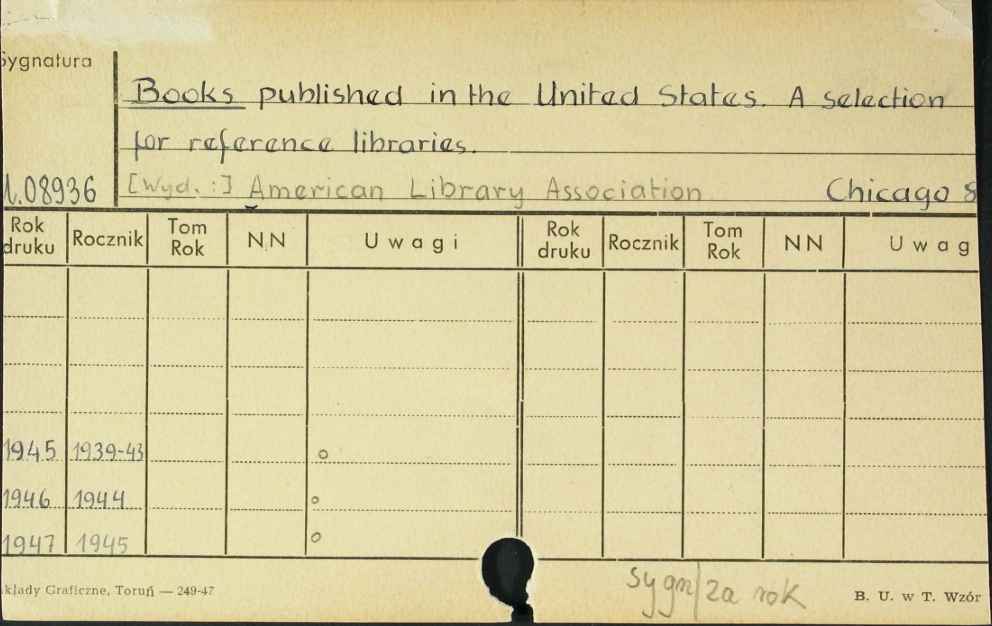 Sygnatura
Books published in the United States. A selection
for reference libraries.
08936 [Wyd. :] American Library Association Chicago 8
Rok druku Rocznik Tom Rok NN Uwagi Rok druku Rocznik Tom Rok NN Uwag
1945 1939-43 o
1946 1944 o
1947 1945 o
sygn/za rok
kłady Graficzne, Toruń — 249-47 B. U. w T. Wzór